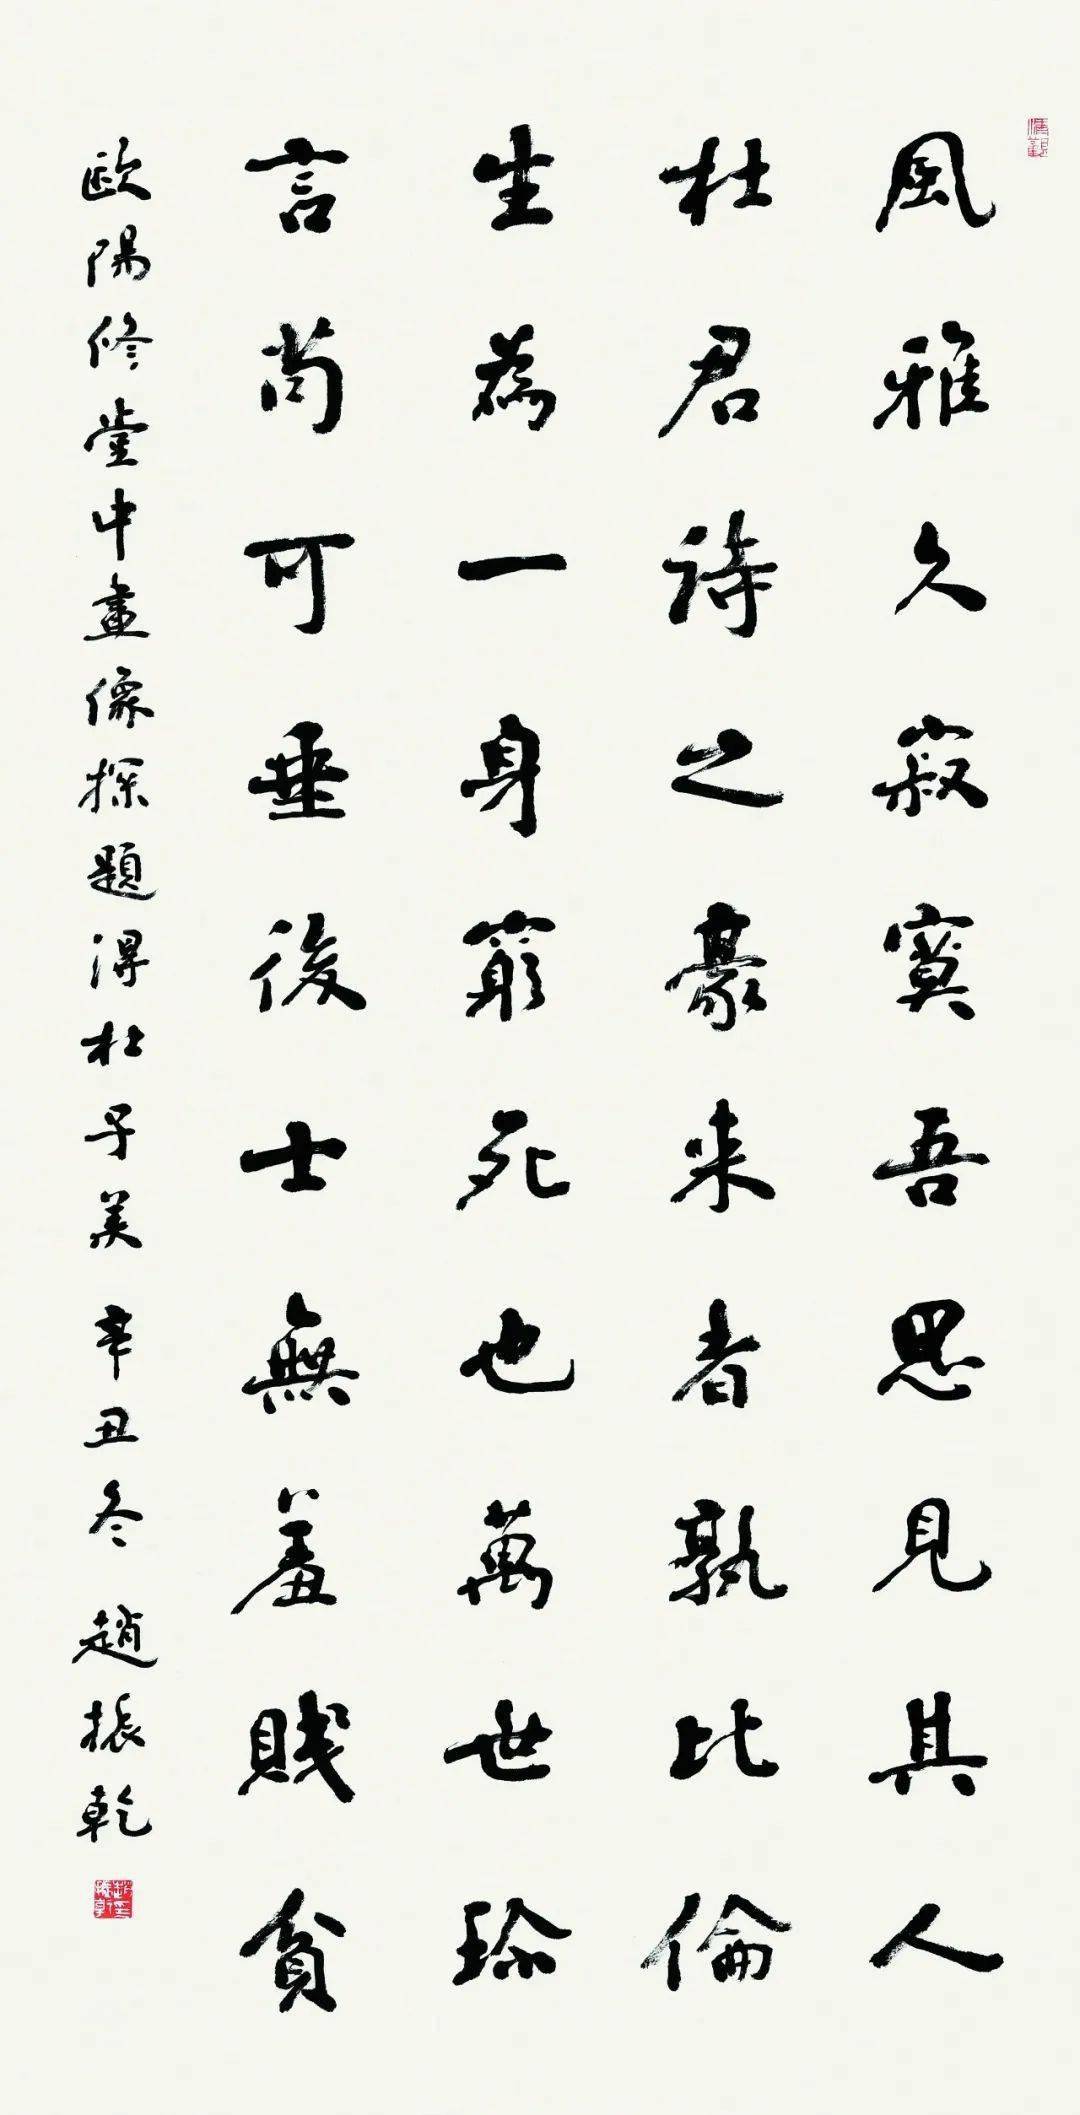 風雅久寂寞吾思見其人
杜君詩之豪来者孰比倫
生為一身窮死也萬世珎
言苟可垂後士無羞賤貧
歐陽修堂中畫像探題得杜子美 辛丑冬 趙振乾